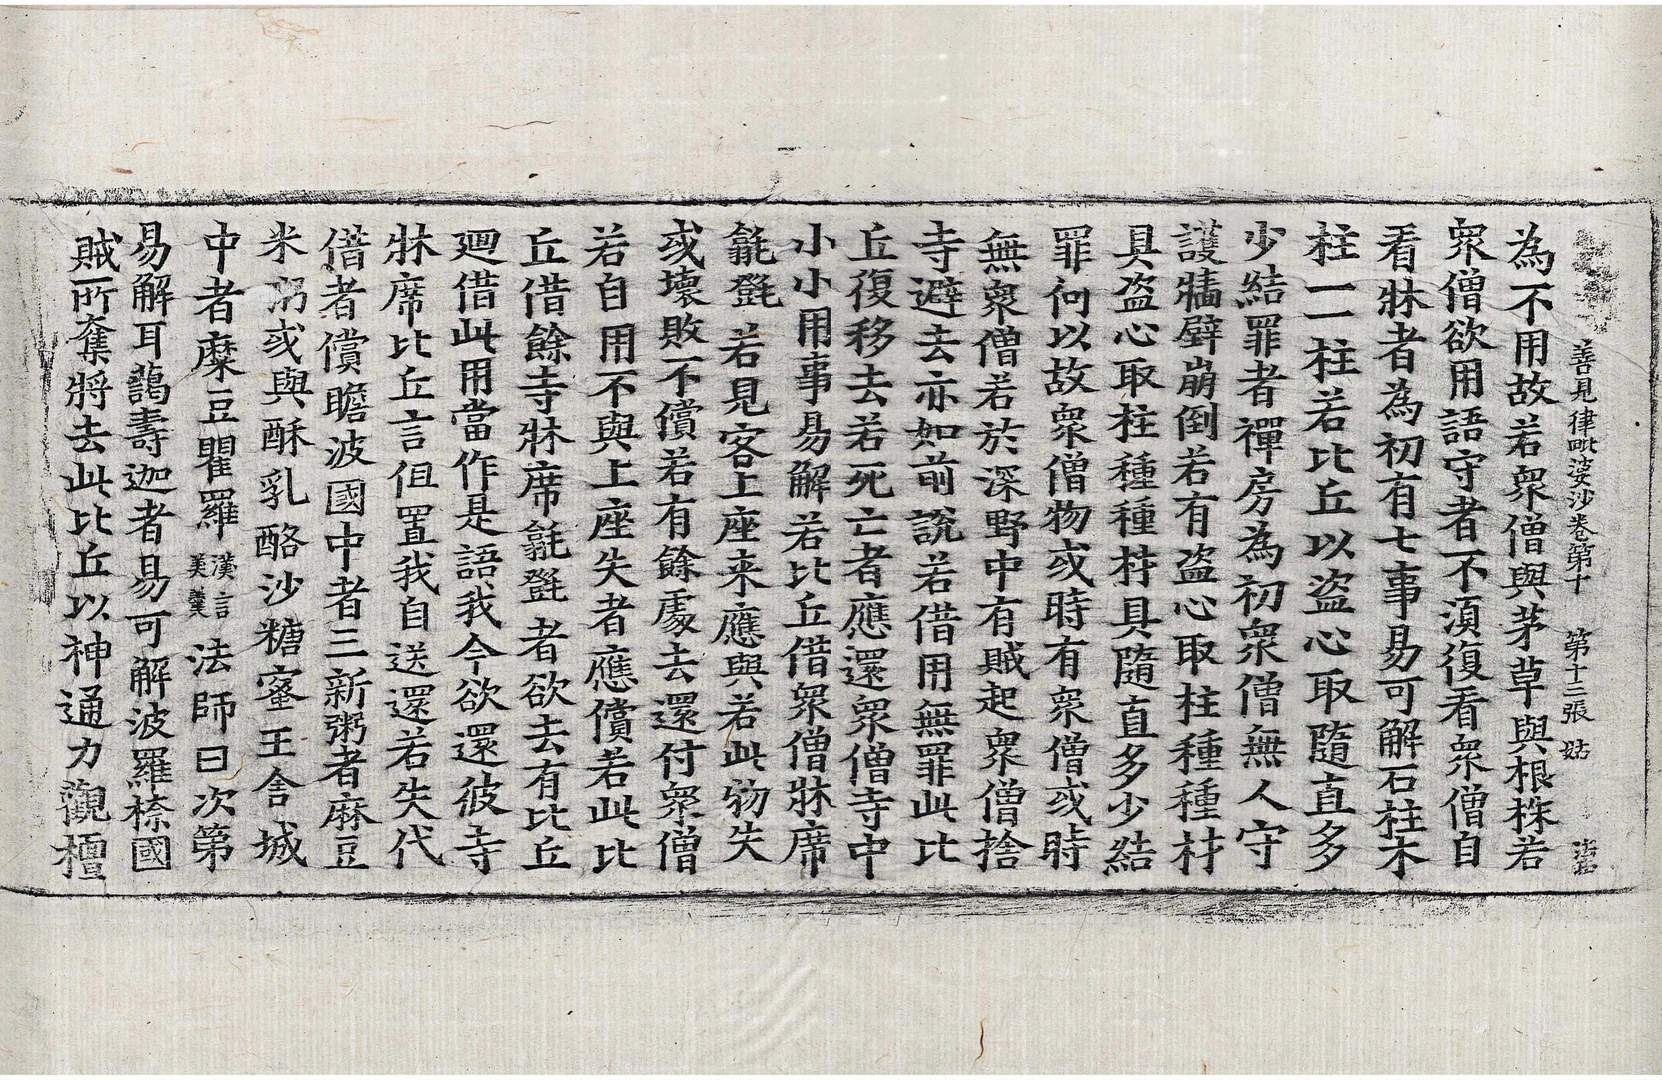 善見律毗婆沙卷第十 第十二張 姑
為不用故若衆僧與茅草與根株若
衆僧欲用語守者不湏復看衆僧自
看牀者為初有七事易可解石柱木
柱一一柱若比丘以盜心取隨直多
少結罪者禪房為初衆僧無人守
護牆壁崩倒若有盜心取柱種種材
具盜心取柱種種材具隨直多少結
罪何以故衆僧物或時有衆僧或時
無衆僧若於深野中有賊起衆僧捨
寺避去亦如前說若借用無罪此比
丘復移去若死亡者應還衆僧寺中
小小用事易解若比丘借衆僧牀席
氍毹若見客上座来應與若此物失
或壞敗不償若有餘處去還付衆僧
若自用不與上座失者應償若此比
丘借餘寺牀席氍毹者欲去有比丘
廻借此用當作是語我今欲還彼寺
牀席比丘言但置我自送還若失代
借者償瞻波國中者三新粥者麻豆
米粥或與酥乳酪沙糖蜜王舍城
中者糜豆瞿羅漢言美羹法師曰次第
易解耳藹壽迦者易可解波羅㮈國
賊所奪將去此比丘以神通力觀檀